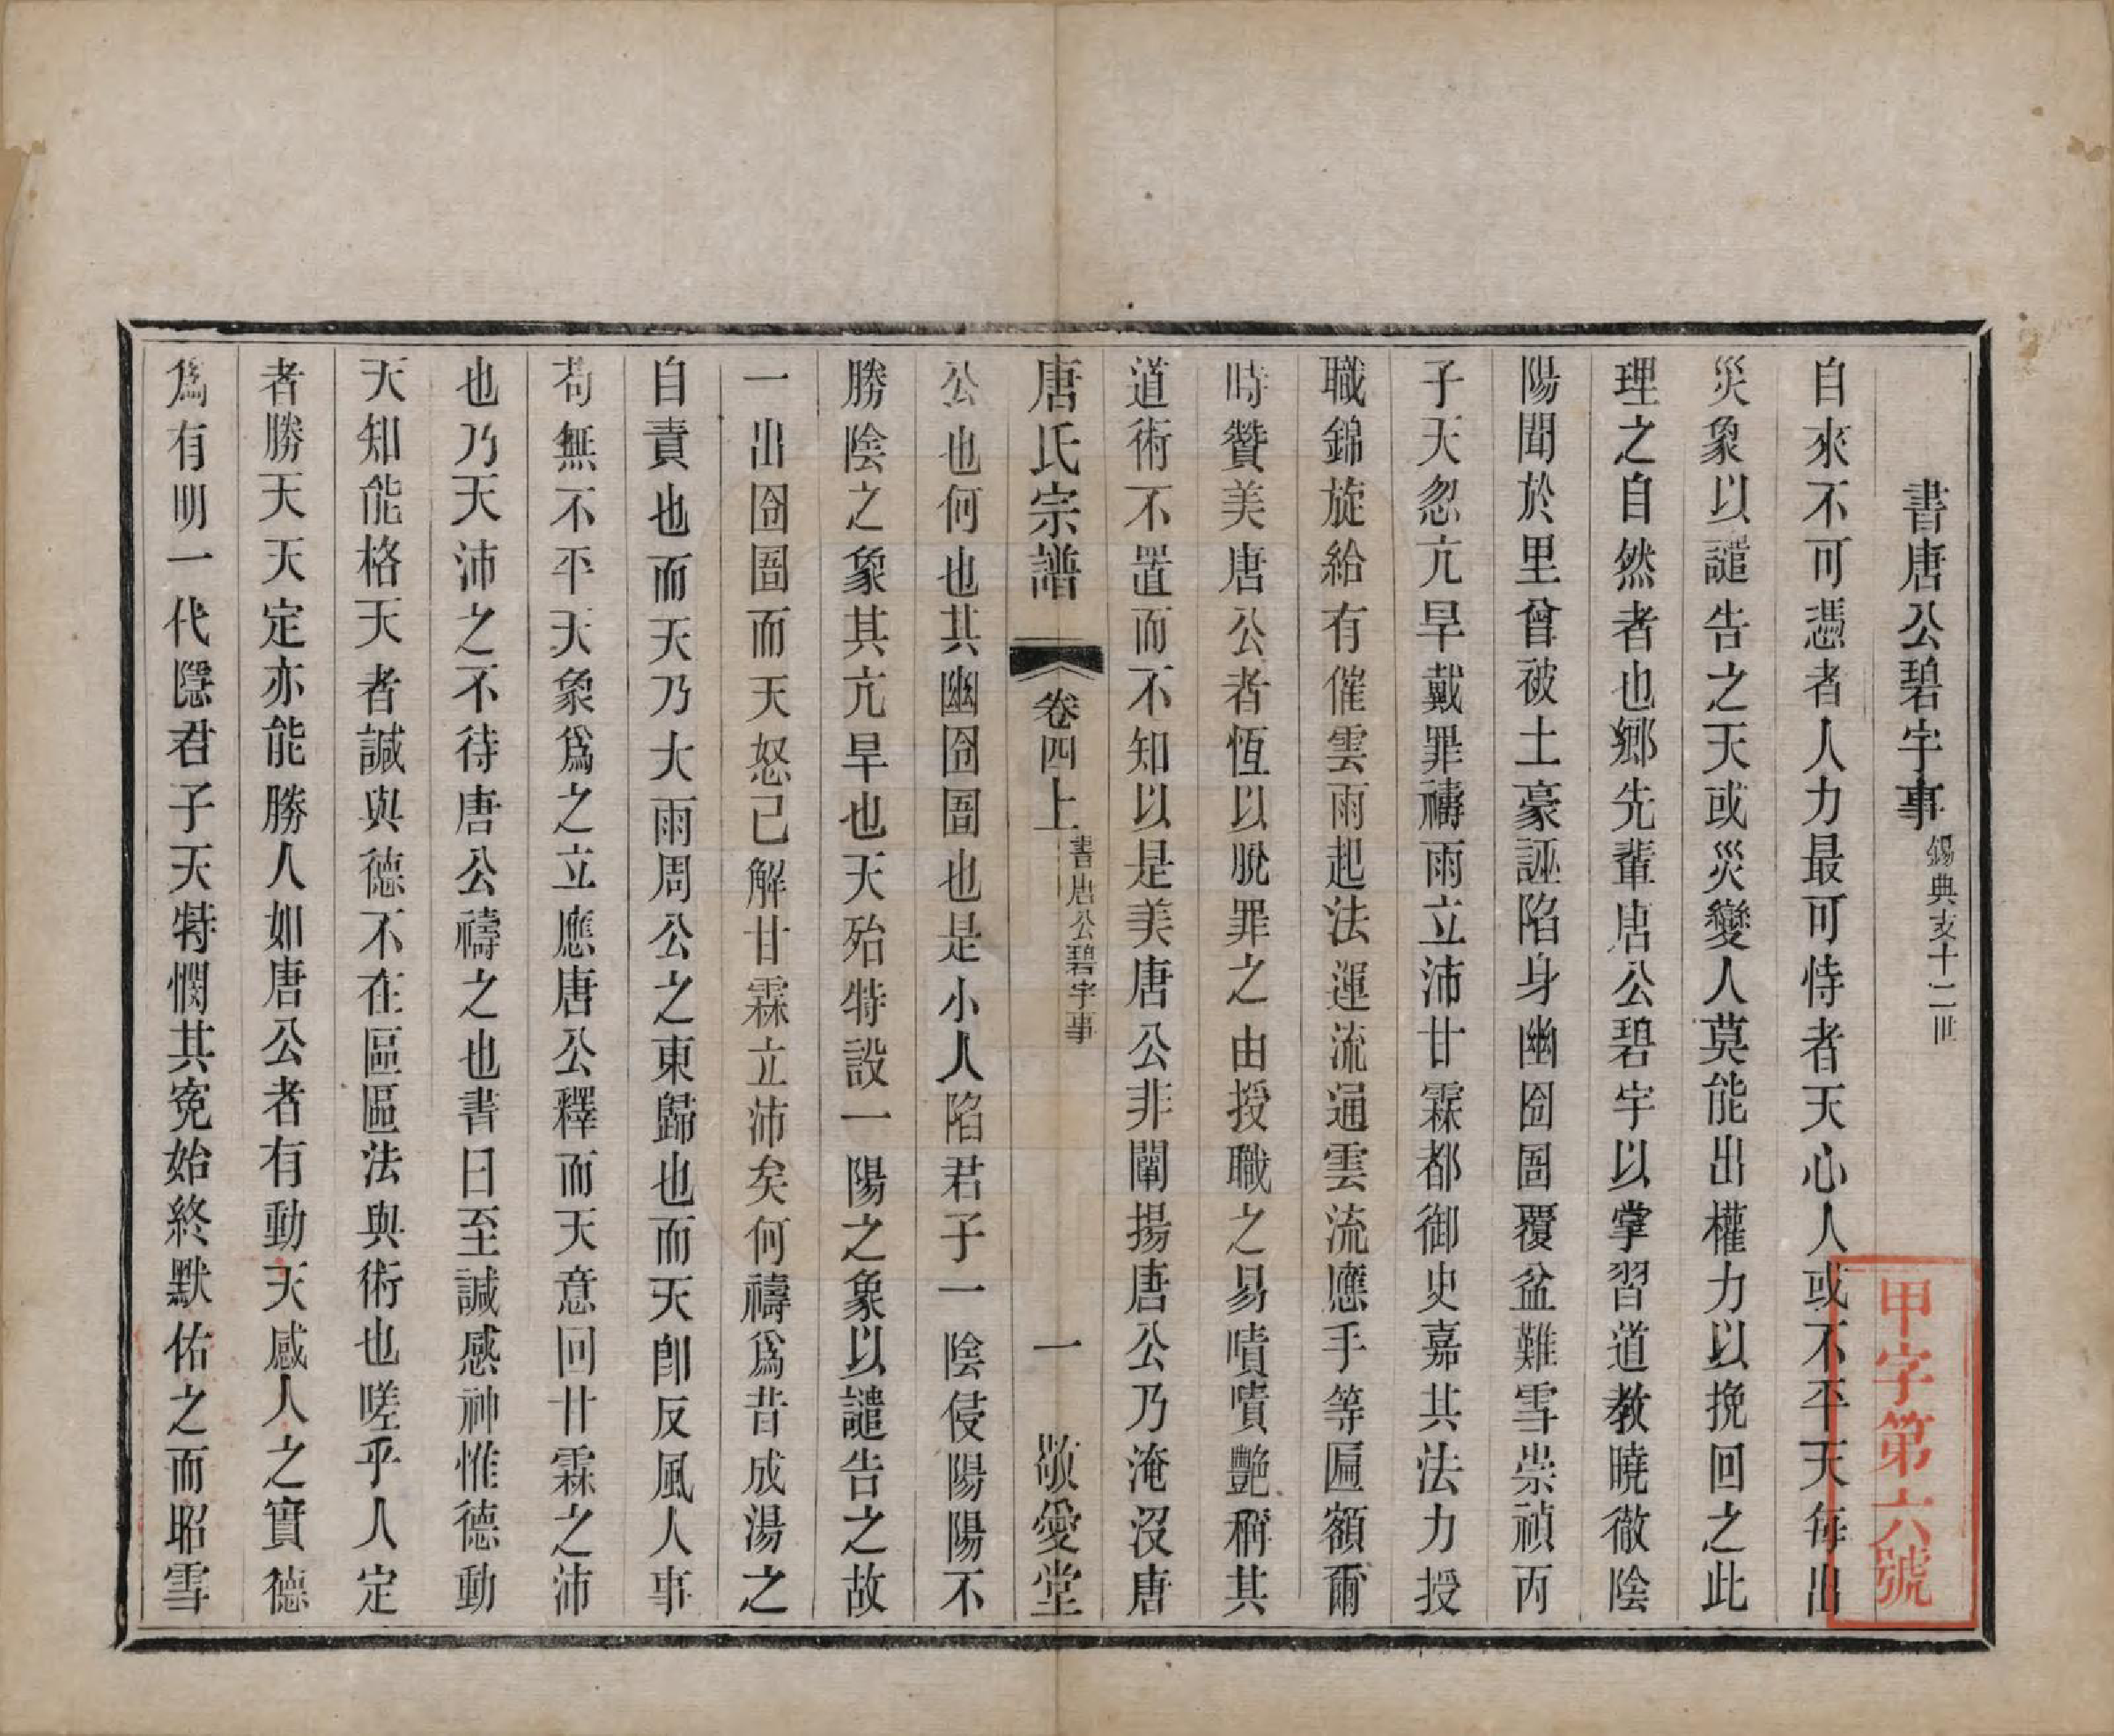 書唐公碧宇事 錫典支十二世
自來不可憑者人力最可恃者天心人或不平天每出
災象以譴告之天或災變人莫能出權力以挽回之此
理之自然者也鄉先輩唐公碧宇以掌習道教曉徹陰
陽聞於里曾被土豪誣陷身幽囹圄覆盆難雪崇禎丙
子天忽亢旱戴罪禱雨立沛甘霖都御史嘉其法力授
職錦旋給有催雲雨起法運流通雲流應手等匾額爾
時贊美唐公者恆以脫罪之由授職之易嘖嘖艷稱其
道術不置而不知以是美唐公非闡揚唐公乃淹沒唐
唐氏宗譜 卷四上 書唐公碧宇事 一 敬愛堂
公也何也其幽囹圄也是小人陷君子一陰侵陽陽不
勝陰之象其亢旱也天殆特設一陽之象以譴告之故
一出囹圄而天怒已解甘霖立沛矣何禱爲昔成湯之
自責也而天乃大雨周公之東歸也而天卽反風人事
苟無不平天象爲之立應唐公釋而天意回甘霖之沛
也乃天沛之不待唐公禱之也書曰至諴感神惟德動
天知能格天者諴與德不在區區法與術也嗟乎人定
者勝天天定亦能勝人如唐公者有動天感人之實德
爲有明一代隱君子天特憫其冤始終默佑之而昭雪
甲字第六號